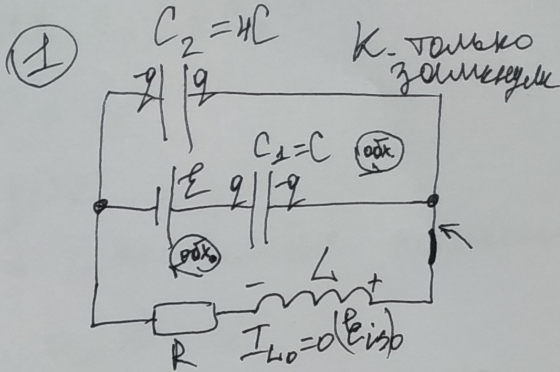 1
C₂ = 4C
К. только
замкнули
-q q
ε C₁ = C обх.
q -q
обх.
- L +
R I_L₀ = 0 (ε_is)₀